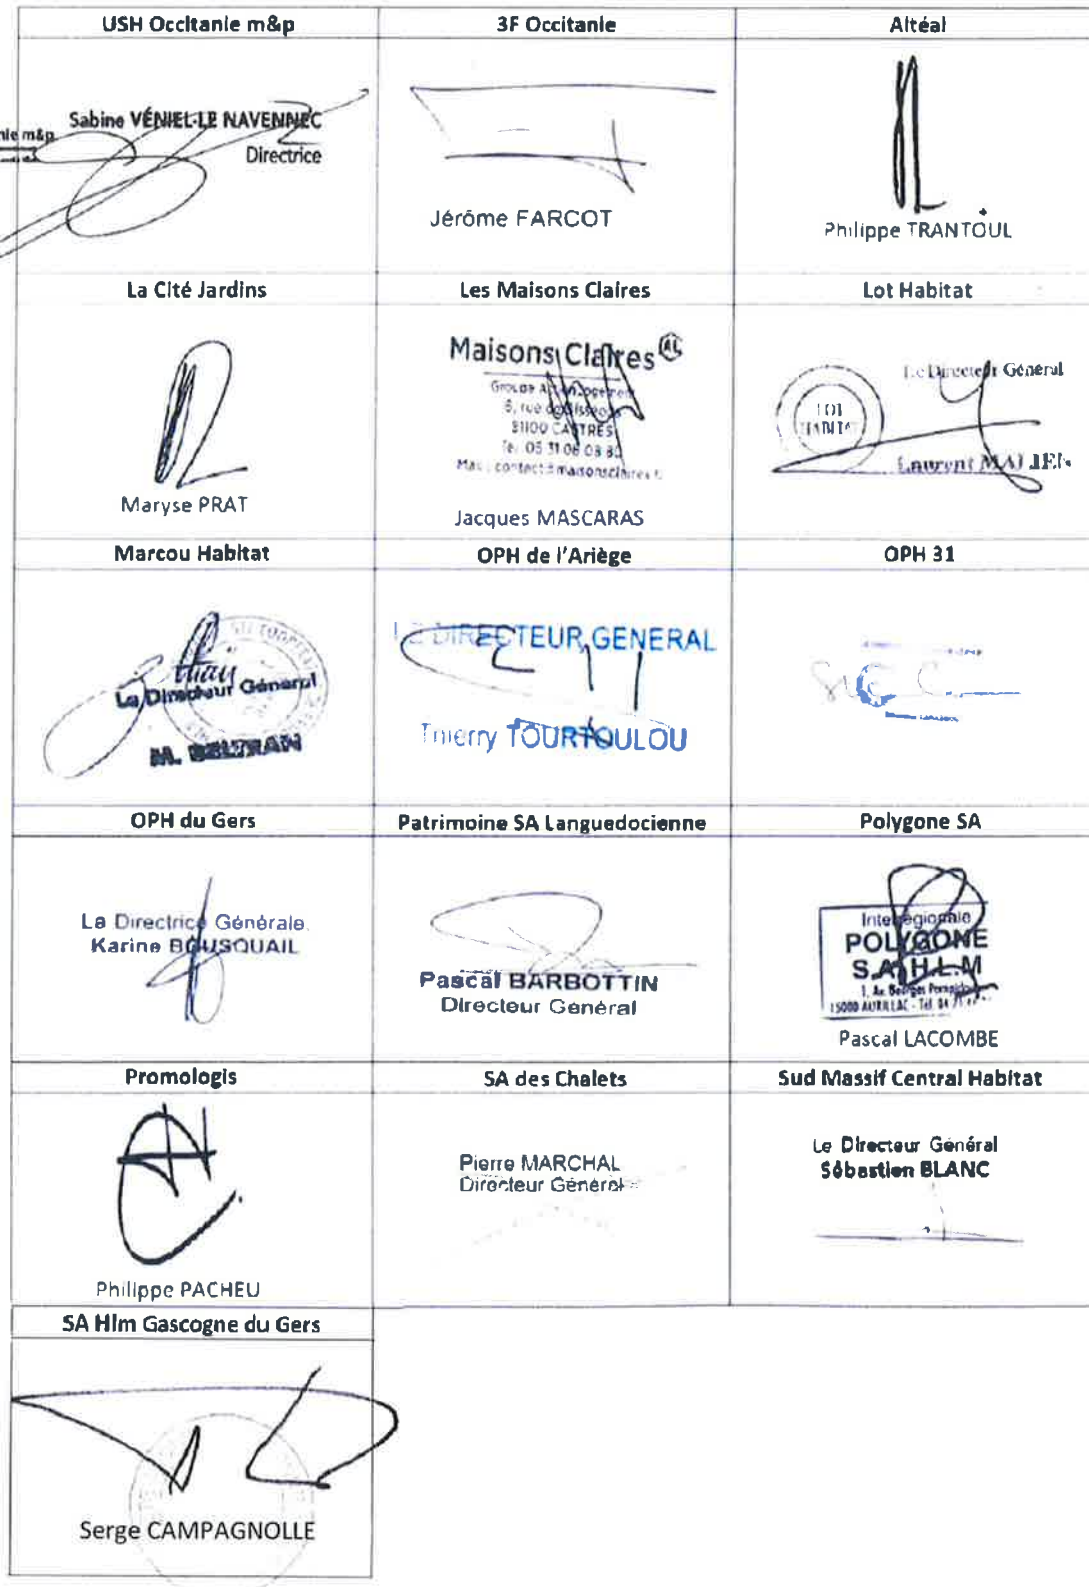 USH Occitanie m&p
3F Occitanie
Altéal
Sabine VÉNIEL-LE NAVENNEC
nie m&p
Directrice
Jérôme FARCOT
Philippe TRANTOUL
La Cité Jardins
Les Maisons Claires
Lot Habitat
Maisons Claires AL
Groupe Action Logement
81100 CASTRES
Maryse PRAT
Jacques MASCARAS
Le Directeur Général
LOT
HABITAT
Laurent
Marcou Habitat
OPH de l'Ariège
OPH 31
Le Directeur Général
M. BELTRAN
LE DIRECTEUR GENERAL
Thierry TOURTOULOU
OPH du Gers
Patrimoine SA Languedocienne
Polygone SA
La Directrice Générale
Karine BOUSQUAIL
Pascal BARBOTTIN
Directeur Général
Interrégionale
POLYGONE
S.A. H.L.M
15000 AURILLAC - Tél. 04 71
Pascal LACOMBE
Promologis
SA des Chalets
Sud Massif Central Habitat
Philippe PACHEU
Pierre MARCHAL
Directeur Général
Le Directeur Général
Sébastien BLANC
SA Hlm Gascogne du Gers
Serge CAMPAGNOLLE